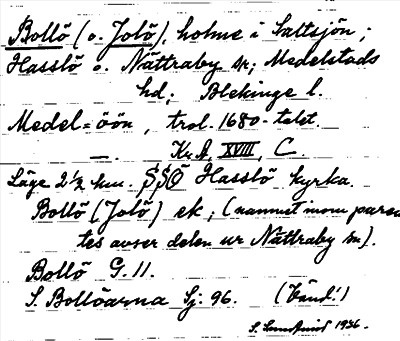 Bollö (o. Jolö), holme i Saltsjön;
Hasslö o. Nättraby sn; Medelstads
hd; Blekinge l.
Medel-öön, trol. 1680-talet.
—. Kr. A. XVIII, C.
Läge 2 ½ km. SSÖ Hasslö kyrka.
Bollö (Jolö) ek; (namnet inom paren-
tes avser delen ur Nättraby sn).
Bollö G. 11.
S. Bollöarna Sj. 96. (Vänd!)
1936.